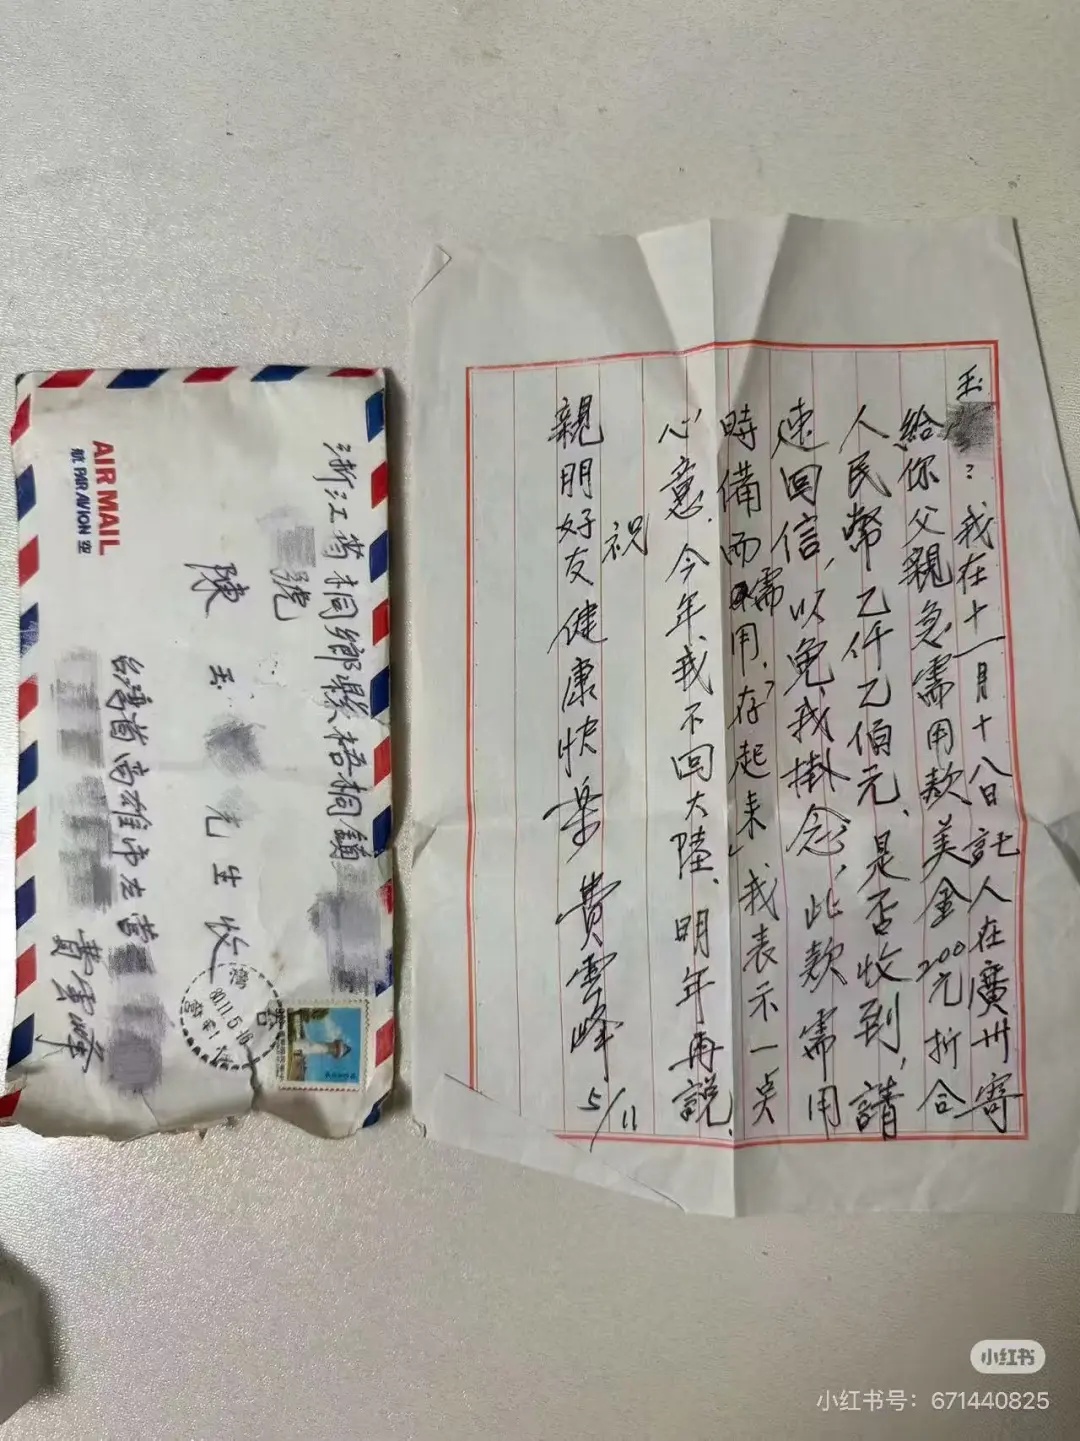 AIR MAIL
航 PAR AVION 空
浙江省桐鄉縣梧桐鎮
號
陳玉 先生收
台灣省高雄市左營
費雲峰
80.11.5.16
玉 : 我在十一月十八日託人在廣州寄
給你父親急需用款美金200元折合
人民幣乙仟乙佰元、是否收到,請
速回信,以免我掛念,此款需用
時備而需用.存起来,我表示一点
心意.今年我不回大陸、明年再說.
祝
親朋好友健康快樂 費雲峰
5/11
小红书
小红书号：671440825